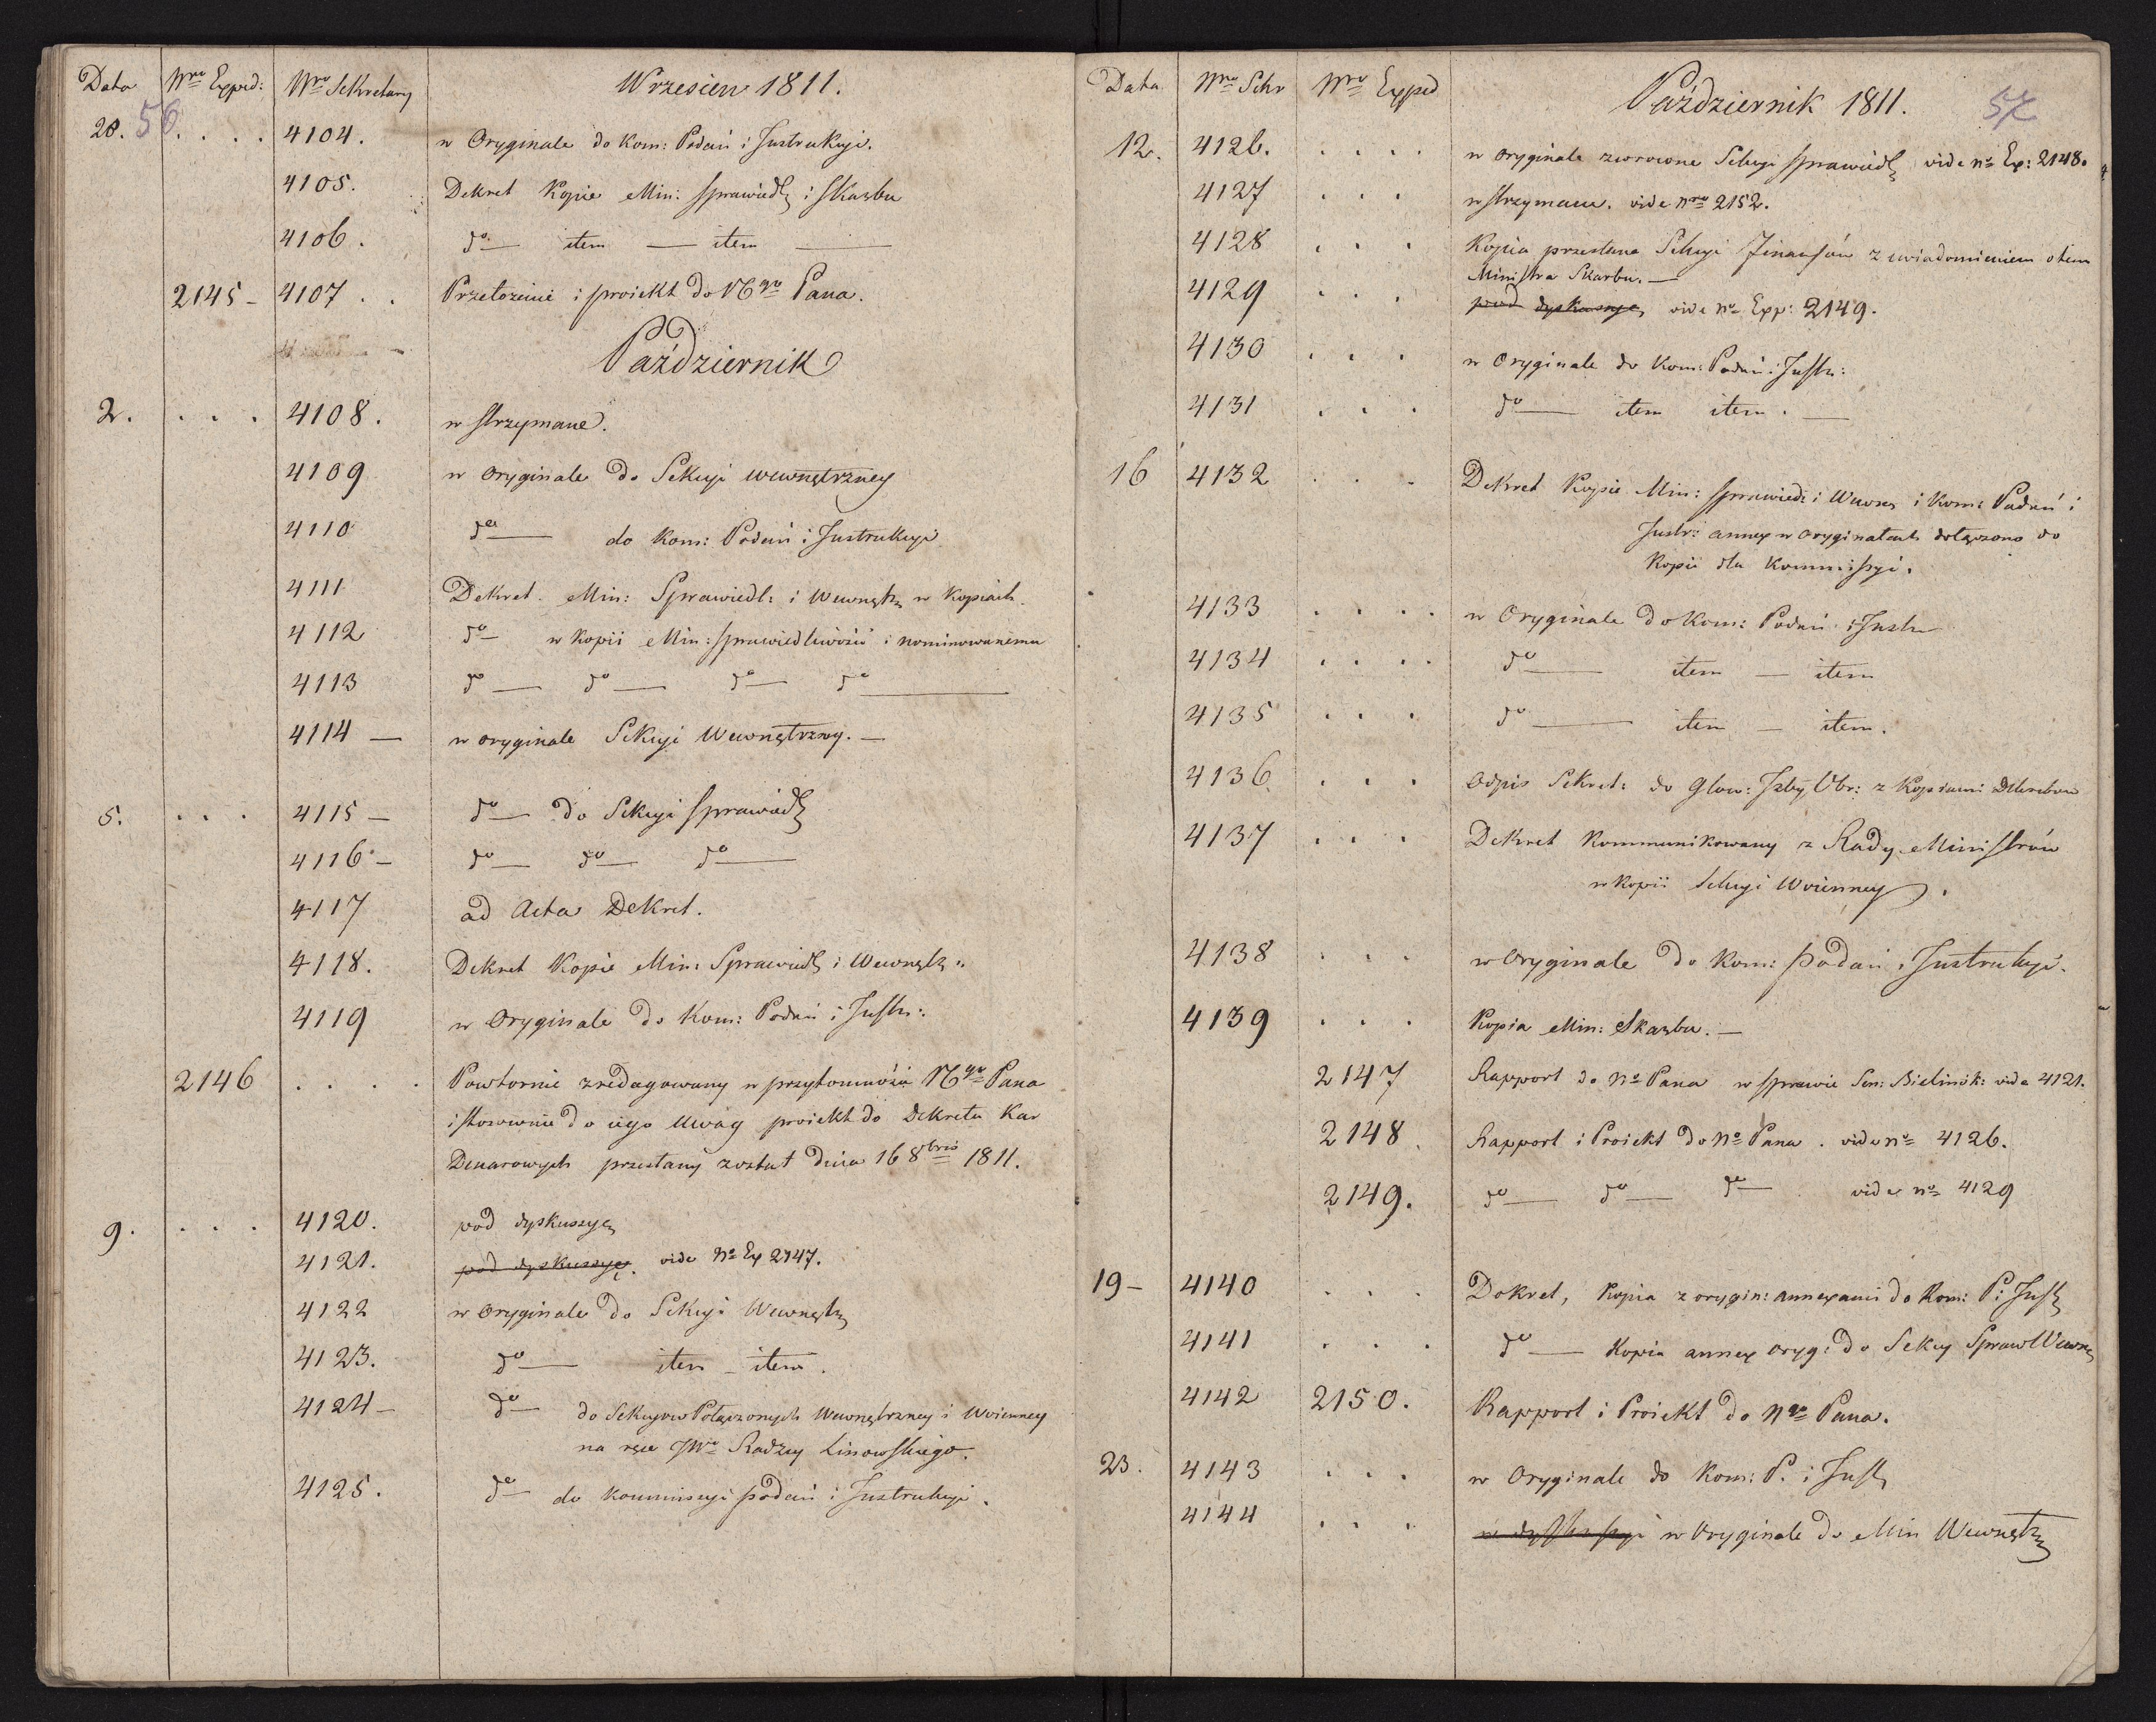 Data Nro Exped: Nro Sekretary Wrzesien 1811.
56
28. . . . . 4104. w Oryginale do Kom: Podań i Instrukcyi.
4105. Dekret Kopie Min: Sprawiedl i Skarbu
4106. do item item
2145 - 4107 . . Przełożenie i proiekt do NGo Pana.
Październik
2. . . . 4108. wstrzymane.
4109 w Oryginale do Sekcyi wewnętrzney
4110 do do Kom: Podań i Instrukcyi
4111 Dekret. Min: Sprawiedl: i Wewnętrz w Kopiach.
4112 do w Kopii Min: sprawiedliwości i nominowanemu
4113 do do do do
4114 — w oryginale Sekcyi Wewnętrzney. —
5. . . . 4115 — do do Sekcyi sprawiedl
4116 - do do do
4117 ad Acta Dekret.
4118. Dekret Kopie Min: Sprawiedl i Wewnętrz:
4119 w Oryginale do Kom: Podań i Instr:
2146 . . . . Powtornie zredagowany w przytomności NGo Pana
i stosownie do iego Uwag proiekt do Dekretu Kar
Denarowych przesłany został dnia 16 8bris 1811.
9. . . . 4120. pod dyskussyę
4121. pod dyskussyę. vide No Ex 2147.
4122 w Oryginale do Sekcyi Wewnętrz
4123. do item - item.
4124 - do do Sekcyow Połączonych Wewnętrzney i Woienney
na ręce JWo Radzcy Linowskiego.
4125. do do Kommissyi podań i Instrukcyi.
Data Nro Sekr Nro Exped Październik 1811.
57
12. 4126. . . . . w oryginale zwrocone Sekcyi sprawiedl vide No Ex: 2148.
4127 . . . wstrzymane. vide Nro 2152.
4128 . . . Kopia przesłana Sekcyi Finansów z uwiadomieniem o tem
Ministra Skarbu. —
4129 . . . pod dyskussyę, vide No Exp: 2149.
4130 . . . w Oryginale do Kom: Podań i Instr:
4131 . . . do item item. —
16 4132 . . . Dekret Kopie Min: sprawied: i Wewn i Kom: Podań i
Instr: annex w oryginałach dołączono do
Kopii dla Kommissyi.
4133 . . . . w Oryginale do Kom: Podań i Instr
4134 . . . . do item — item
4135 . . . do item — item.
4136 . . . Odpis Sekret: do Głow: Izby Obr: z Kopiami Dekretow
4137 . . . Dekret Kommunikowany z Rady Ministrów
w Kopii Sekcyi Woienney.
4138 . . . w Oryginale do Kom: Podań i Instrukcyi.
4139 . . . Kopia Min: Skarbu. —
2147 Rapport do No Pana w sprawie Sen: Bielińsk: vide 4121.
2148. Rapport i Proiekt do No Pana. vide No 4126.
2149. do do do vide No 4129
19 - 4140 . . . Dekret, Kopia z orygin: annexami do Kom: P: Inst
4141 . . . do Kopia annex oryg: do Sekcy Spraw Wewn
4142 2150. Rapport i Proiekt do Ngo Pana.
23. 4143 . . . w Oryginale do Kom: P. i Inst
4144 . . . w Oryginale do Min Wewnętrz